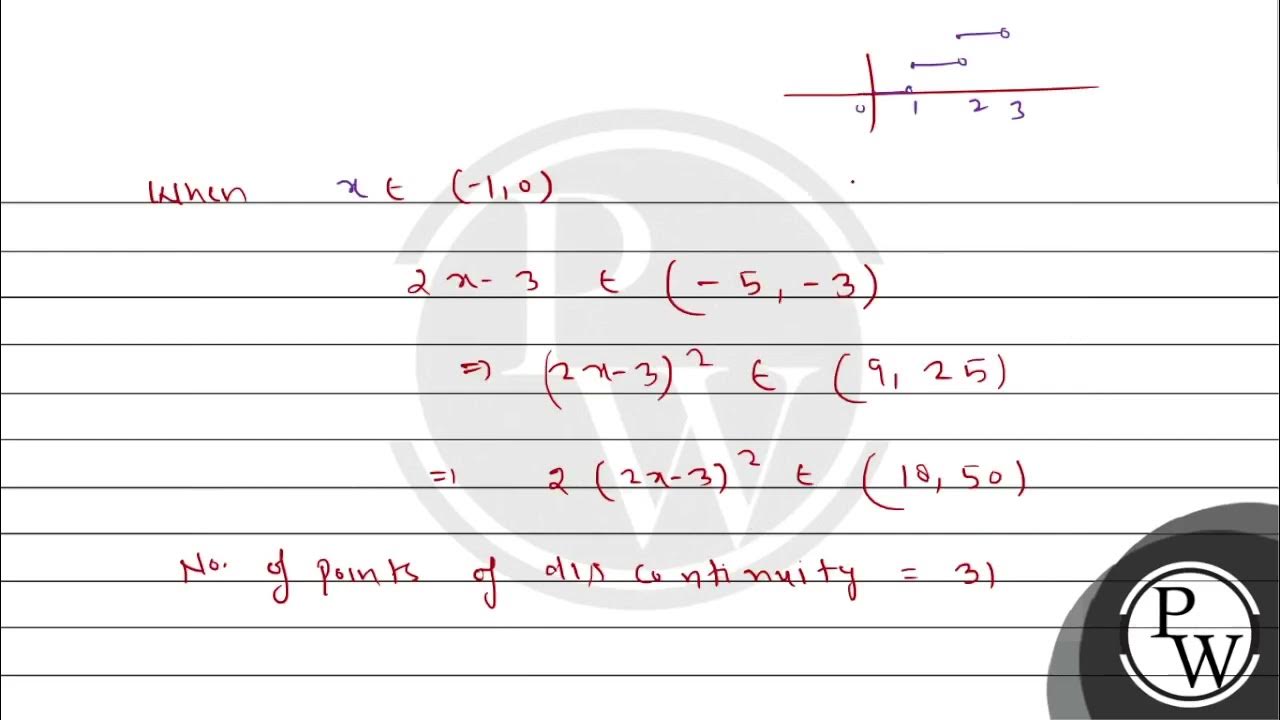 0 1 2 3
When x ∈ (-1, 0)
2x - 3 ∈ (-5, -3)
⇒ (2x-3)² ∈ (9, 25)
⇒ 2(2x-3)² ∈ (18, 50)
No. of points of discontinuity = 31
P
W
P
W